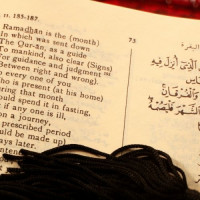 II. 185-187.
Ramadhān is the (month)
In which was sent down
The Qur-ān, as a guide
To mankind, also clear (Signs)
For guidance and judgment
Between right and wrong).
every one of you
who is present (at his home)
during that month
should spend it in fasting,
if any one is ill,
on a journey,
prescribed period
be made up
days later.
73
البقرة
الذي أنزل فيه
والفرقان
الشهر فليصمه